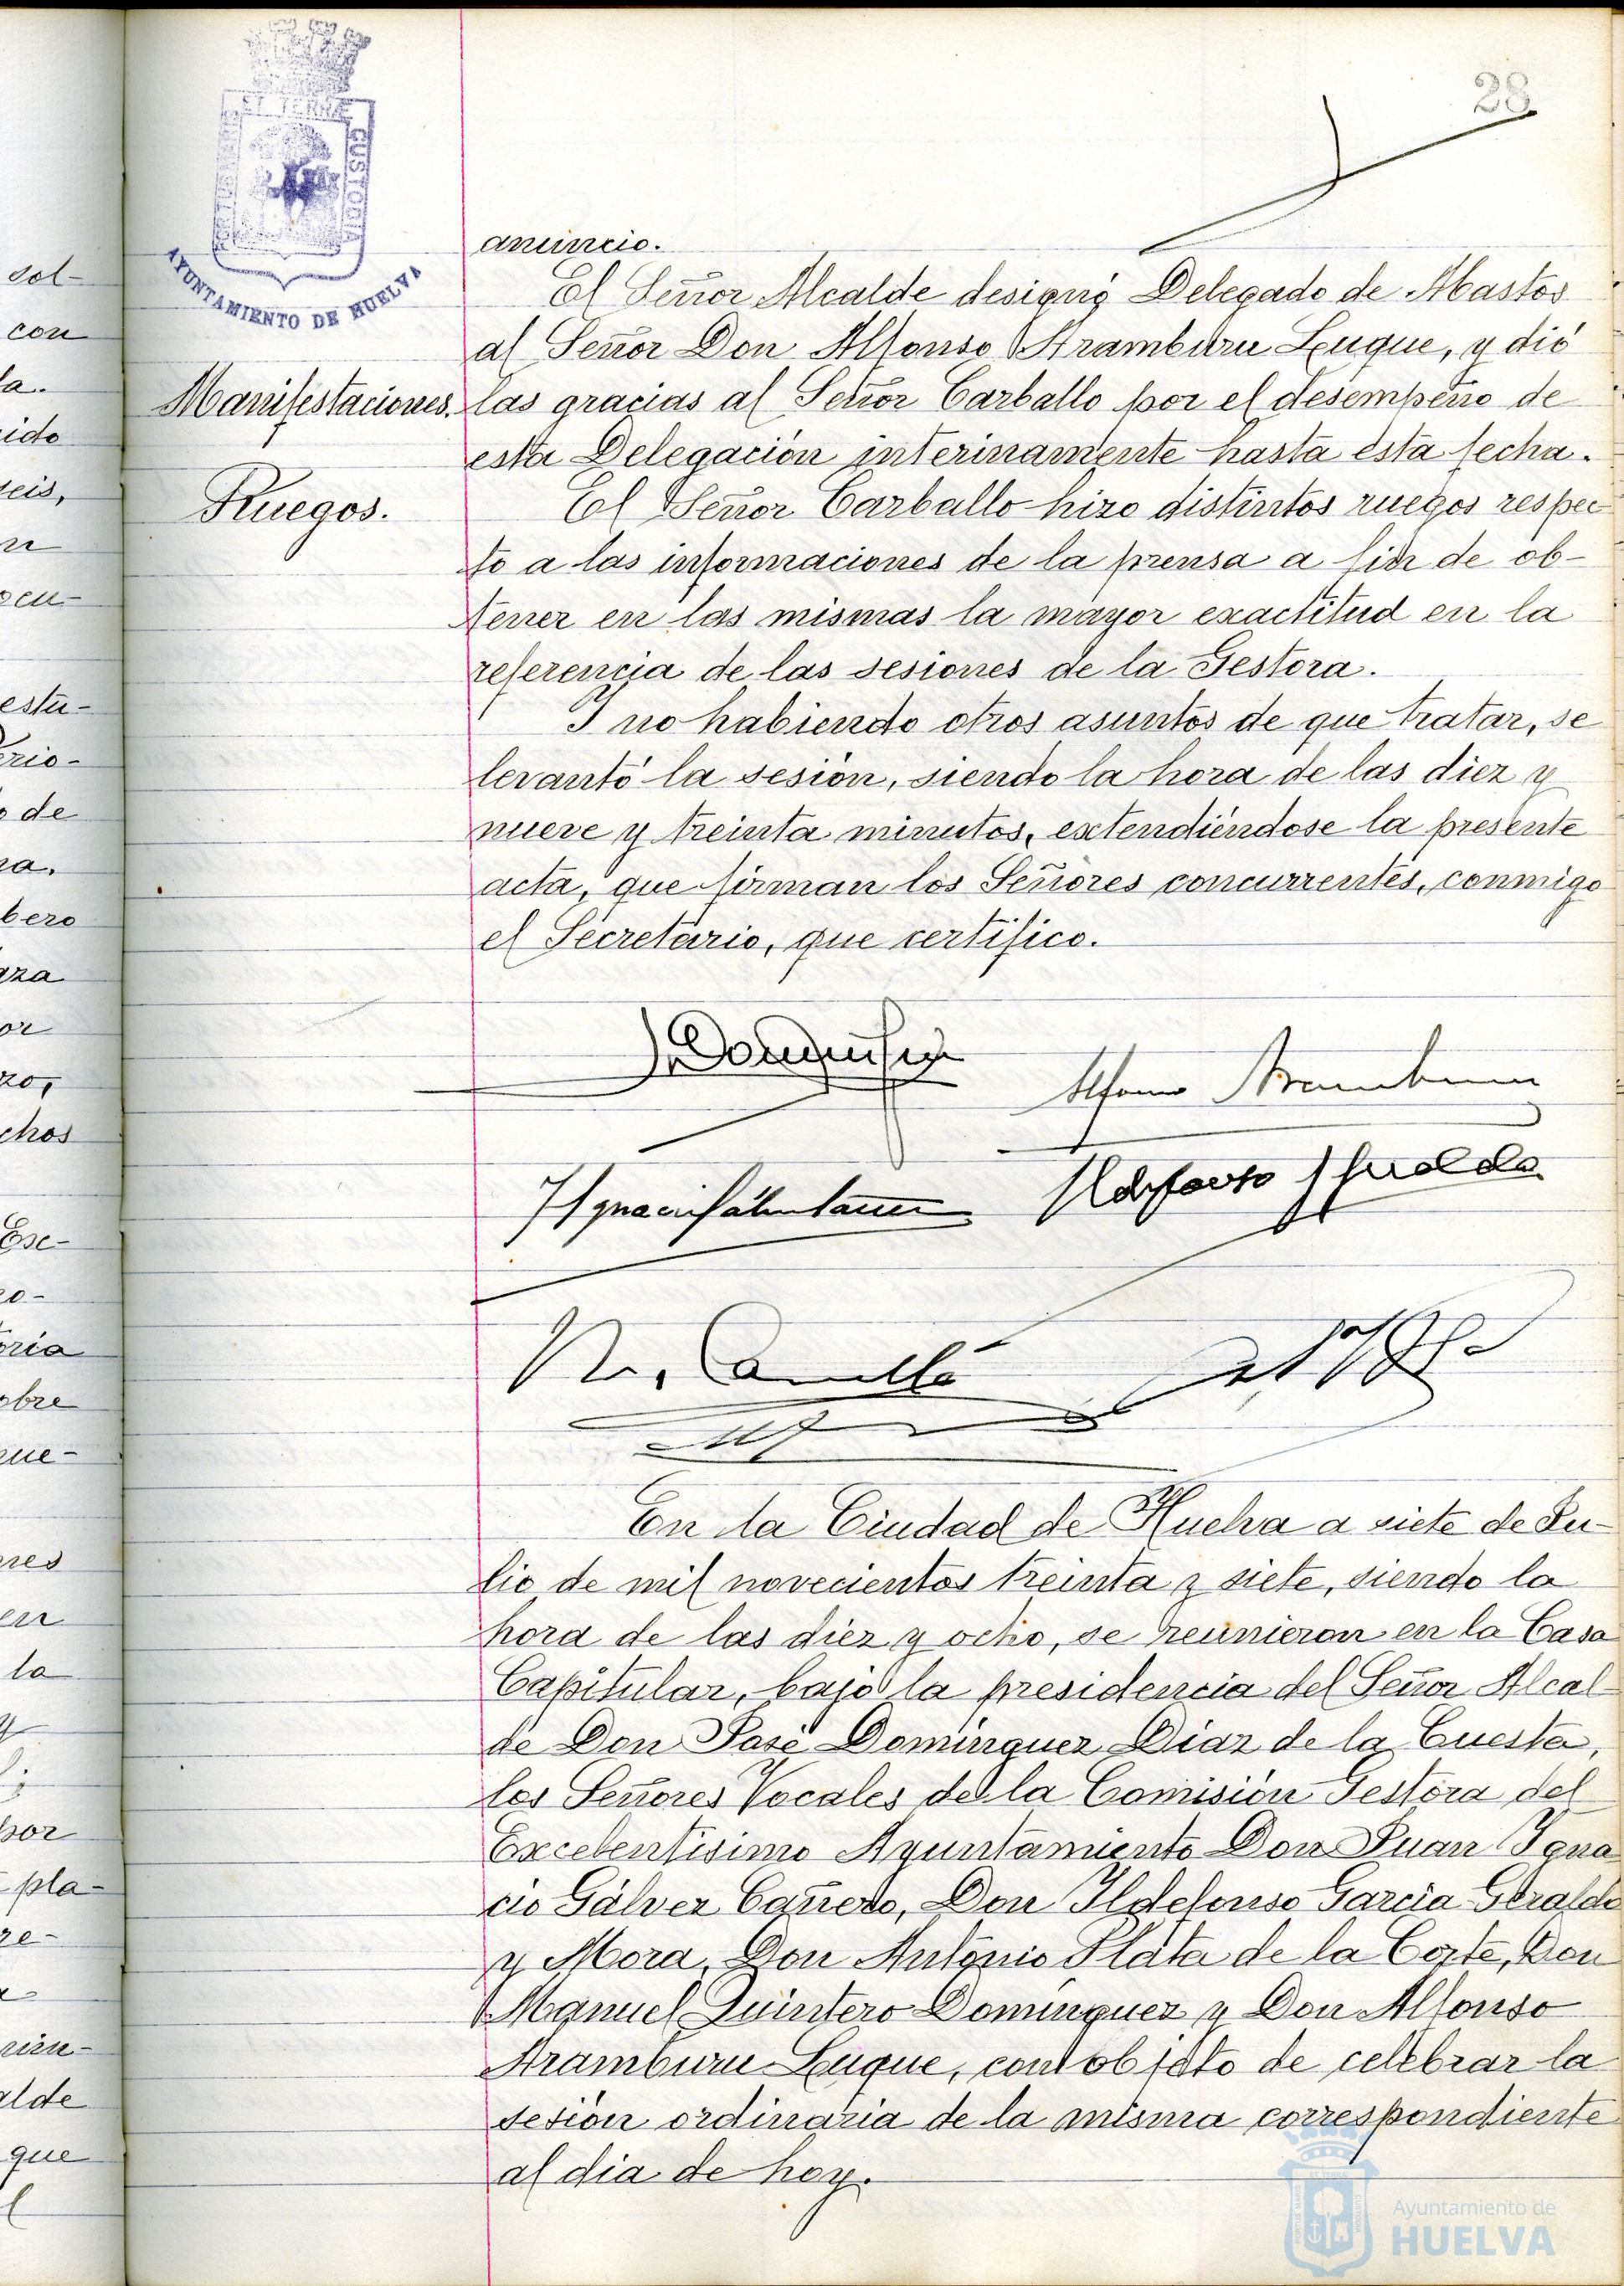 28
ET TERRÆ
CUSTODIA
AYUNTAMIENTO DE HUELVA
anuncio.
El Señor Alcalde designó Delegado de Abastos
al Señor Don Alfonso Aramburu Luque, y dió
Manifestaciones. las gracias al Señor Carballo por el desempeño de
esta Delegación interinamente hasta esta fecha.
Ruegos. El Señor Carballo hizo distintos ruegos respec
to a las informaciones de la prensa a fin de ob-
tener en las mismas la mayor exactitud en la
referencia de las sesiones de la Gestora.
Y no habiendo otros asuntos de que tratar, se
levantó la sesión, siendo la hora de las diez y
nueve y treinta minutos, extendiéndose la presente
acta, que firman los Señores concurrentes, conmigo
el Secretario, que certifico.
Alfonso Aramburu
En la Ciudad de Huelva a siete de Ju-
lio de mil novecientos treinta y siete, siendo la
hora de las diez y ocho, se reunieron en la Casa
Capitular, bajo la presidencia del Señor Alcal-
de Don José Domínguez Díaz de la Cuesta,
los Señores Vocales de la Comisión Gestora del
Excelentísimo Ayuntamiento Don Juan Igna
cio Gálvez Cañero, Don Ildefonso García Geraldo
y Mora, Don Antonio Plata de la Corte, Don
Manuel Quintero Domínguez y Don Alfonso
Aramburu Luque, con objeto de celebrar la
sesión ordinaria de la misma correspondiente
al dia de hoy.
Ayuntamiento de
HUELVA